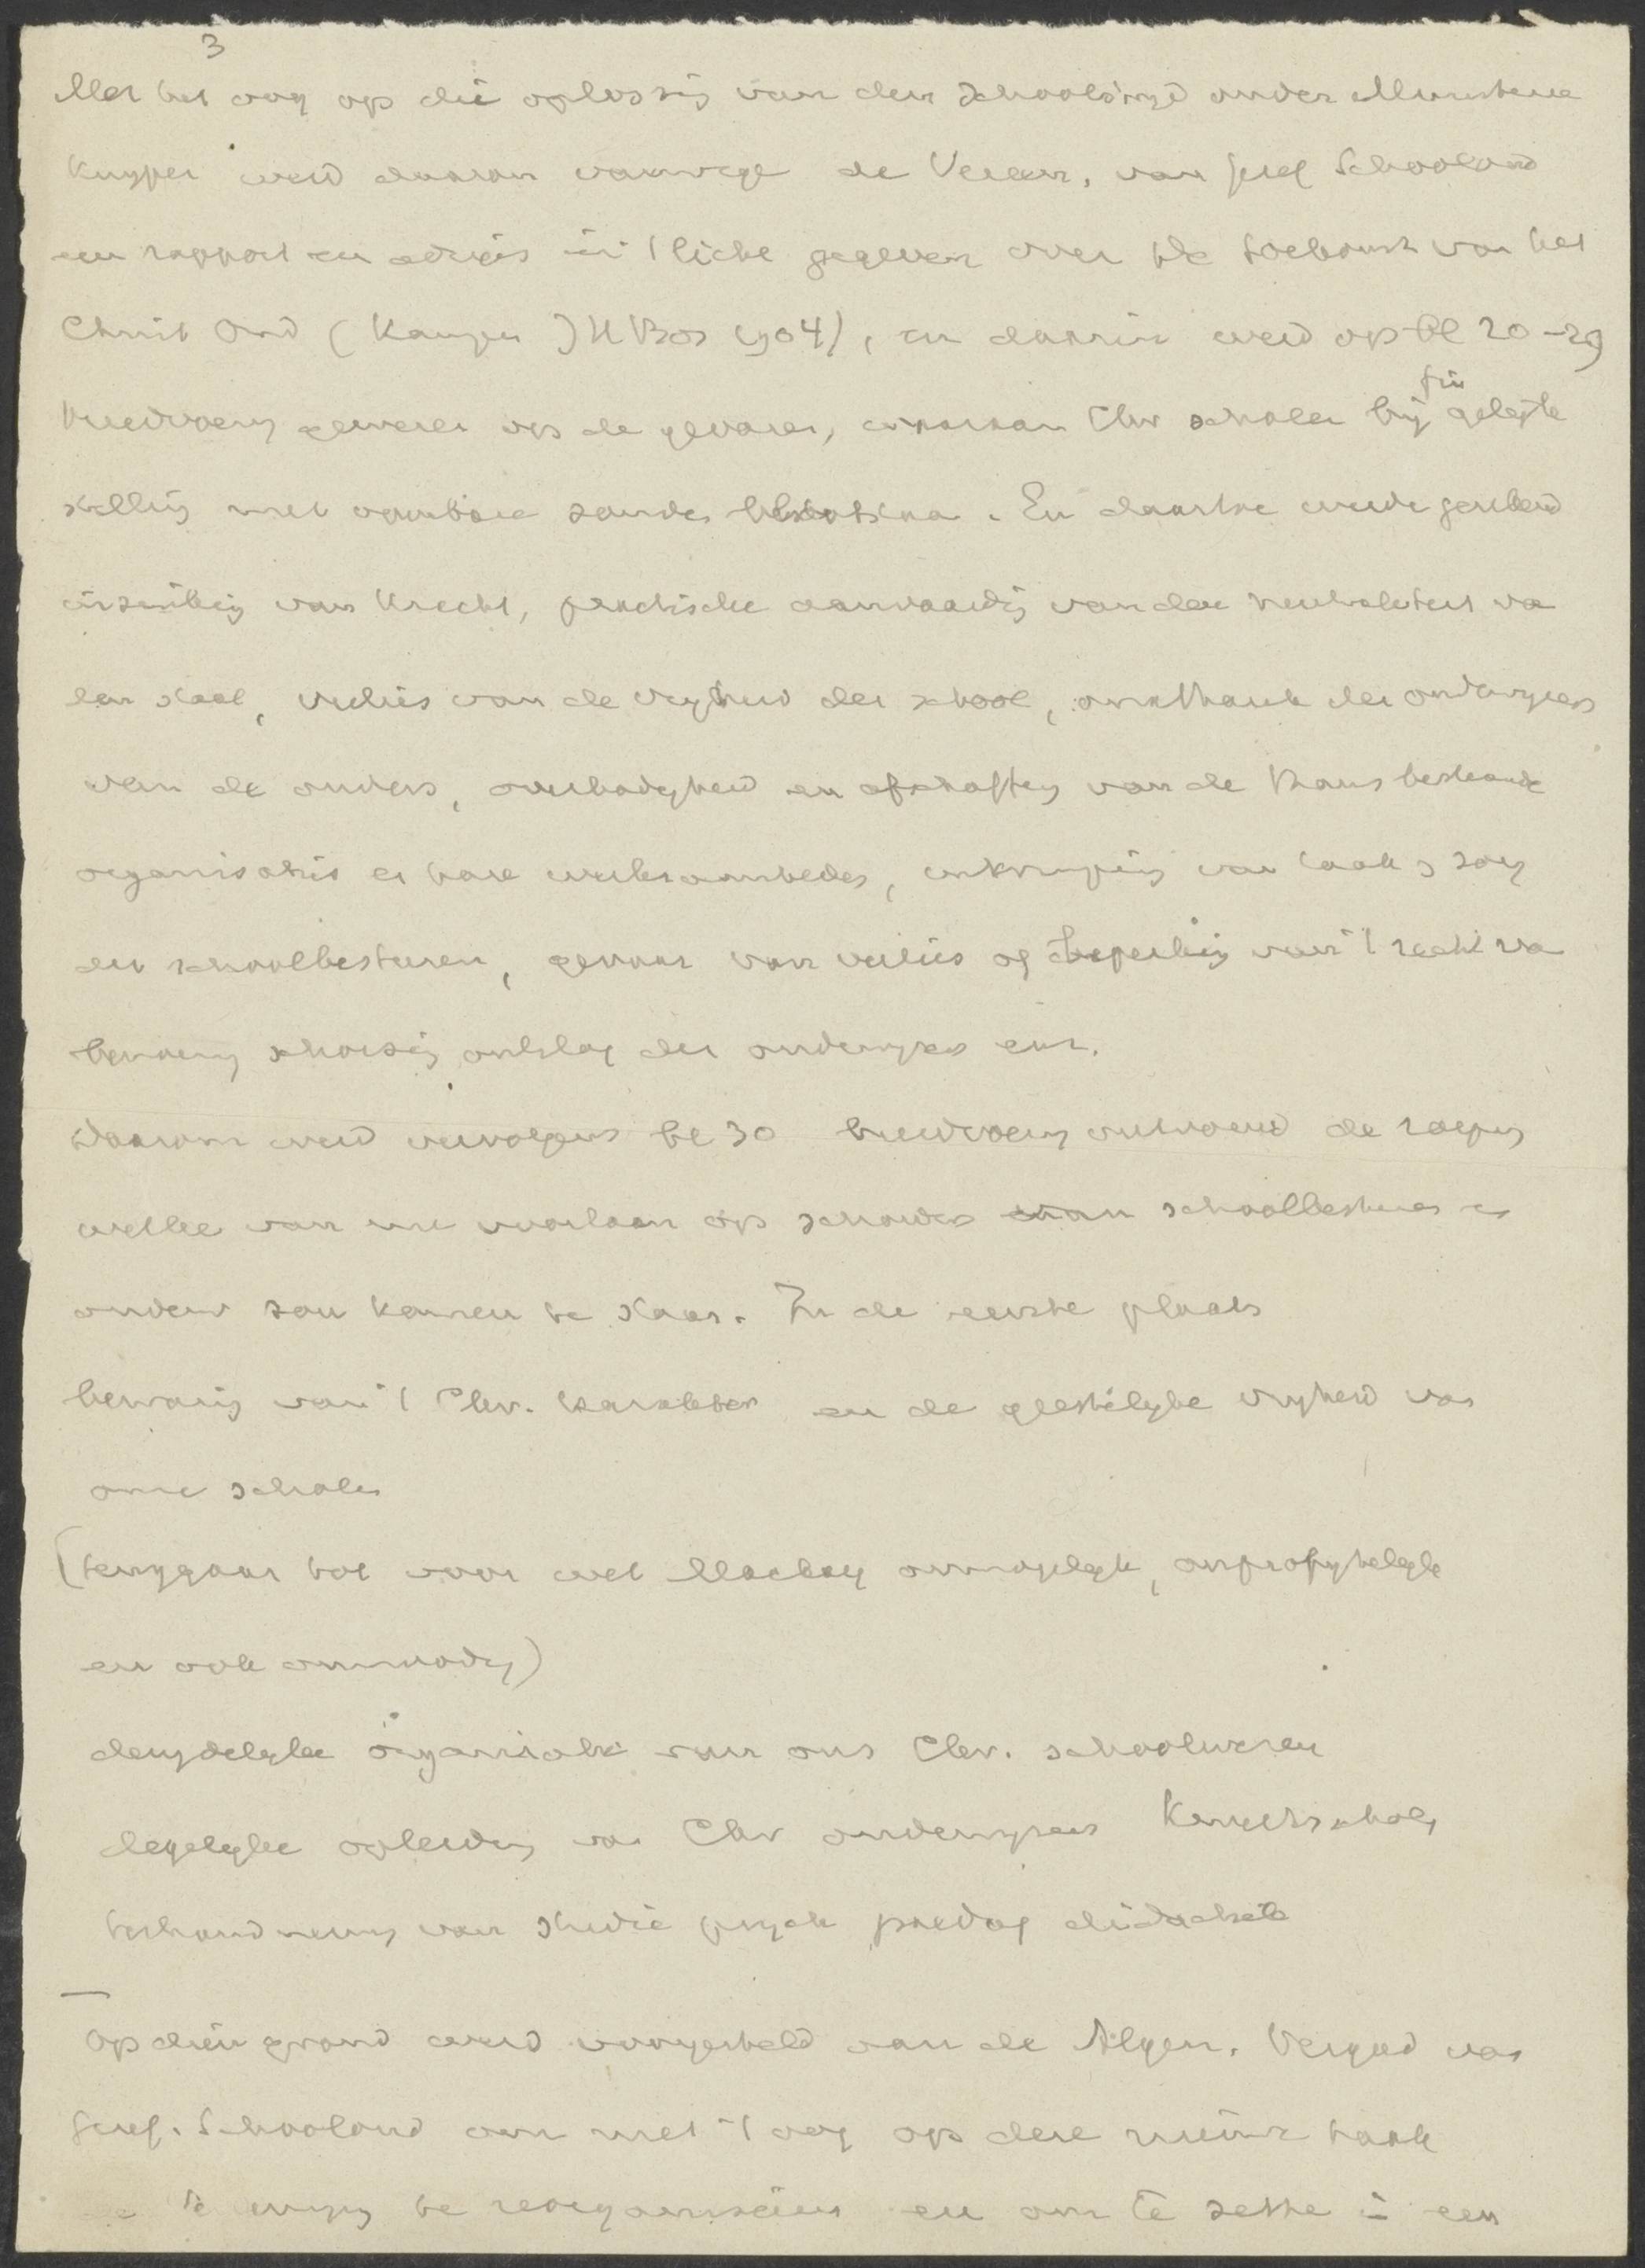 3
Met het oog op die oplossing van den schoolstrijd onder Ministerie
Kuyper werd daarom vanwege de Vereen. van Geref Schoolond
een rapport en advies in 't licht gegeven over de toekomst van het
Christ Ond (Kampen JH Bos 1904), en daarin werd op bl 20-29
breedvoerig gewezen op de gevaren, waaraan Chr scholen bij fin gelijkstelling
met openbare zouden blootstaan. En daartoe werden gerekend
inzinking van kracht, practische aanvaarding van de neutraliteit van
den staat, verlies van de vrijheid der school, onafhank der onderwijzers
van de ouders, overbodigheid en afschaffing van de thans bestaande
organisaties en hare werkzaamheden, inkrimping van taak en zorg
der schoolbesturen, gevaar van verlies of beperking van 't recht van
benoeming schorsing ontslag der onderwijzers enz.
Daarom werd vervolgens bl 30 breedvoerig ontvouwd de roeping
welke van nu voortaan op schouders van schoolbesturen en
ouders zou komen te staan. In de eerste plaats
bewaring van 't Chr. karakter en de geestelijke vrijheid van
onze scholen
(teruggaan tot voor wet Mackay onmogelijk, onprofijtelijk
en ook onnoodig)
organisatie van ons Chr. schoolwezen
degelijke opleiding van Chr onderwijzers Kweekscholen
ter hand neming van studie psych paedag didactiek
Op dien grond werd voorgesteld aan de Algem. Vergad van
Geref. Schoolond om met 't oog op deze nieuwe taak
te reorganiseeren en om te zetten in een